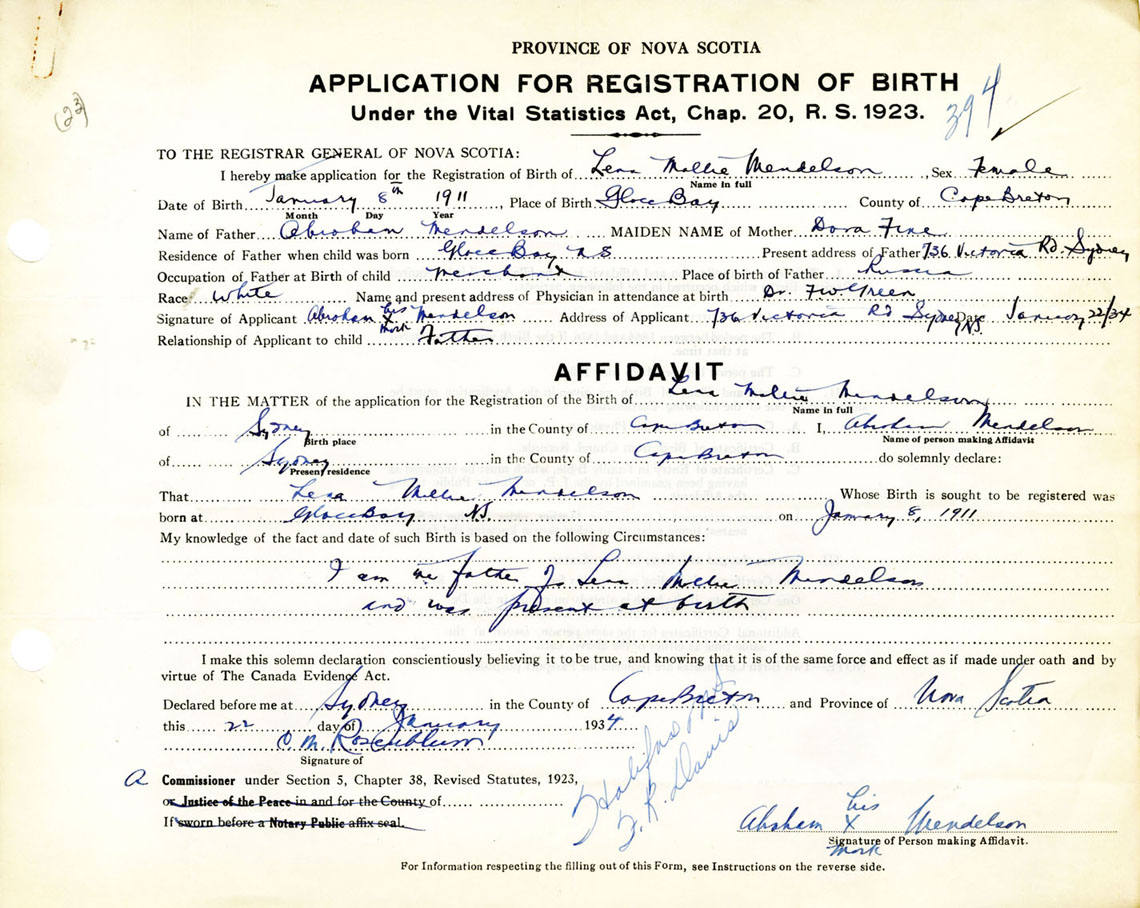 PROVINCE OF NOVA SCOTIA
APPLICATION FOR REGISTRATION OF BIRTH
Under the Vital Statistics Act, Chap. 20, R. S. 1923.
394
(23)
TO THE REGISTRAR GENERAL OF NOVA SCOTIA:
I hereby make application for the Registration of Birth of Lena Mollie Mendelson, Sex Female
Name in full
Date of Birth January 8th 1911, Place of Birth Glace Bay County of Cape Breton
Month Day Year
Name of Father Abraham Mendelson MAIDEN NAME of Mother Dora Fine
Residence of Father when child was born Glace Bay N S Present address of Father 736 Victoria Rd. Sydney
Occupation of Father at Birth of child Merchant Place of birth of Father Russia
Race White Name and present address of Physician in attendance at birth Dr. F W Green
Signature of Applicant Abraham his x mark Mendelson Address of Applicant 736 Victoria Rd Sydney NS Date January 22/34
Relationship of Applicant to child Father
AFFIDAVIT
IN THE MATTER of the application for the Registration of the Birth of Lena Mollie Mendelson
Name in full
of Sydney in the County of Cape Breton I, Abraham Mendelson
Birth place Name of person making Affidavit
of Sydney in the County of Cape Breton do solemnly declare:
Present residence
That Lena Mollie Mendelson Whose Birth is sought to be registered was
born at Glace Bay NS on January 8, 1911
My knowledge of the fact and date of such Birth is based on the following Circumstances:
I am the father of Lena Mollie Mendelson
and was present at birth
I make this solemn declaration conscientiously believing it to be true, and knowing that it is of the same force and effect as if made under oath and by
virtue of The Canada Evidence Act.
Declared before me at Sydney in the County of Cape Breton and Province of Nova Scotia
this 22 day of January 1934
C. M. Rosenblum
Signature of
A Commissioner under Section 5, Chapter 38, Revised Statutes, 1923,
or Justice of the Peace in and for the County of
If sworn before a Notary Public affix seal.
Halifax
F. R. Davis
Abraham his x mark Mendelson
Signature of Person making Affidavit.
For Information respecting the filling out of this Form, see Instructions on the reverse side.